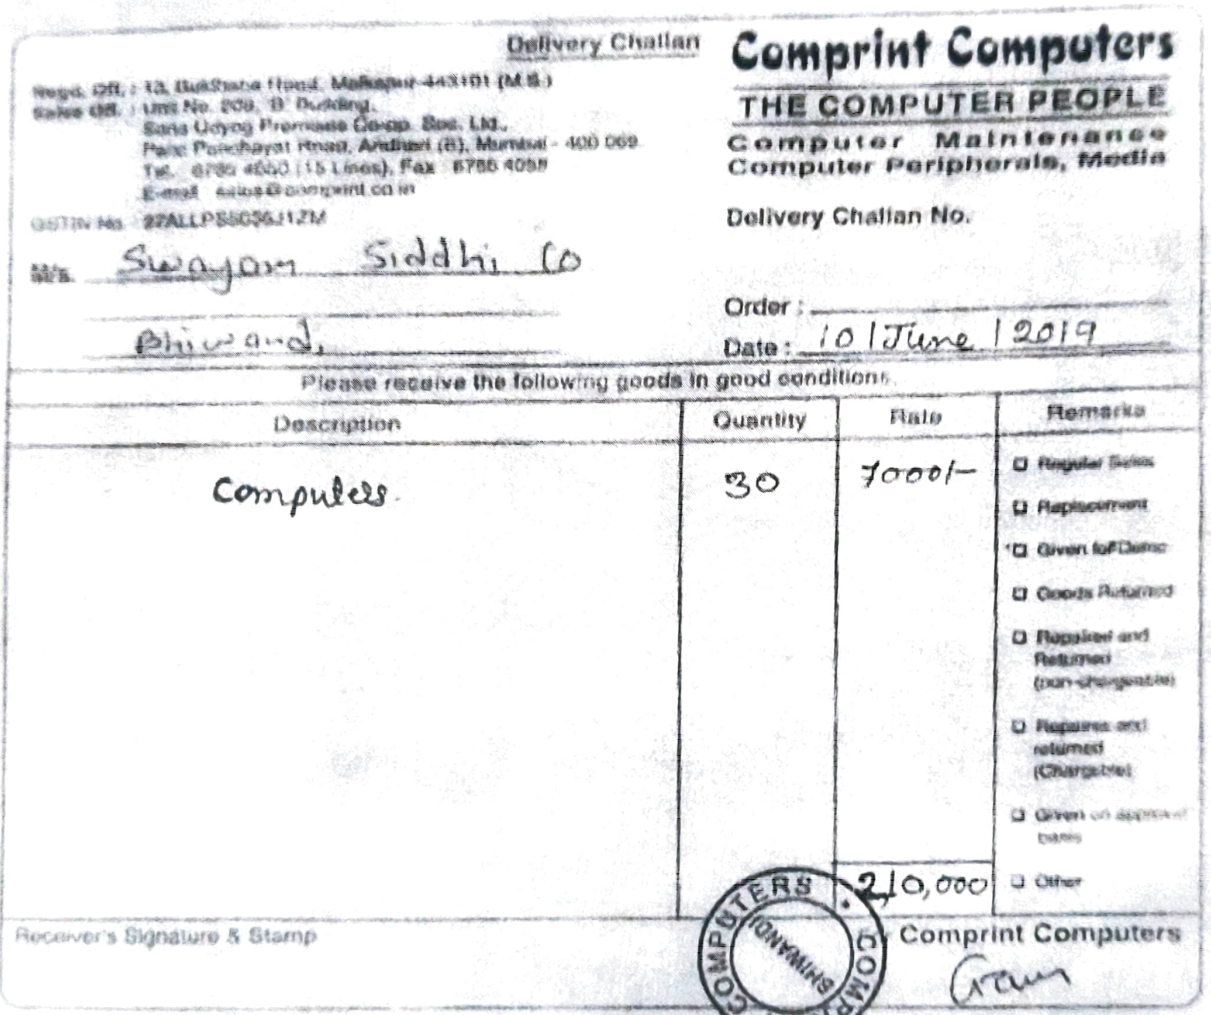 Delivery Challan
Comprint Computers
THE COMPUTER PEOPLE
Computer Maintenance
Computer Peripherals, Media
Regd. Off. : 13, Road, Malkapur-443101 (M.S.)
Sales Off. : Unit No. 208, 'B' Building,
Sana Udyog Premises Co-op. Soc. Ltd.,
Panchayat Road, Andheri (E), Mumbai - 400 069.
Tel. (15 Lines), Fax
E-mail sales@comprint.co.in
GSTIN No.
Delivery Challan No.
M/s. Swayam Siddhi Co
Bhiwandi
Order :
Date : 10/June/2019
Please receive the following goods in good conditions.
Description Quantity Rate Remarks
Computers. 30 7000/-
❑ Regular Sales
❑ Replacement
❑ Given for Demo
❑ Goods Returned
❑ Repaired and
Returned
(non-chargeable)
❑ Repaired and
returned
(Chargeable)
❑ Given on approval
basis
❑ Other
2,10,000
Receiver's Signature & Stamp
Comprint Computers
COMPUTERS
BHIWANDI